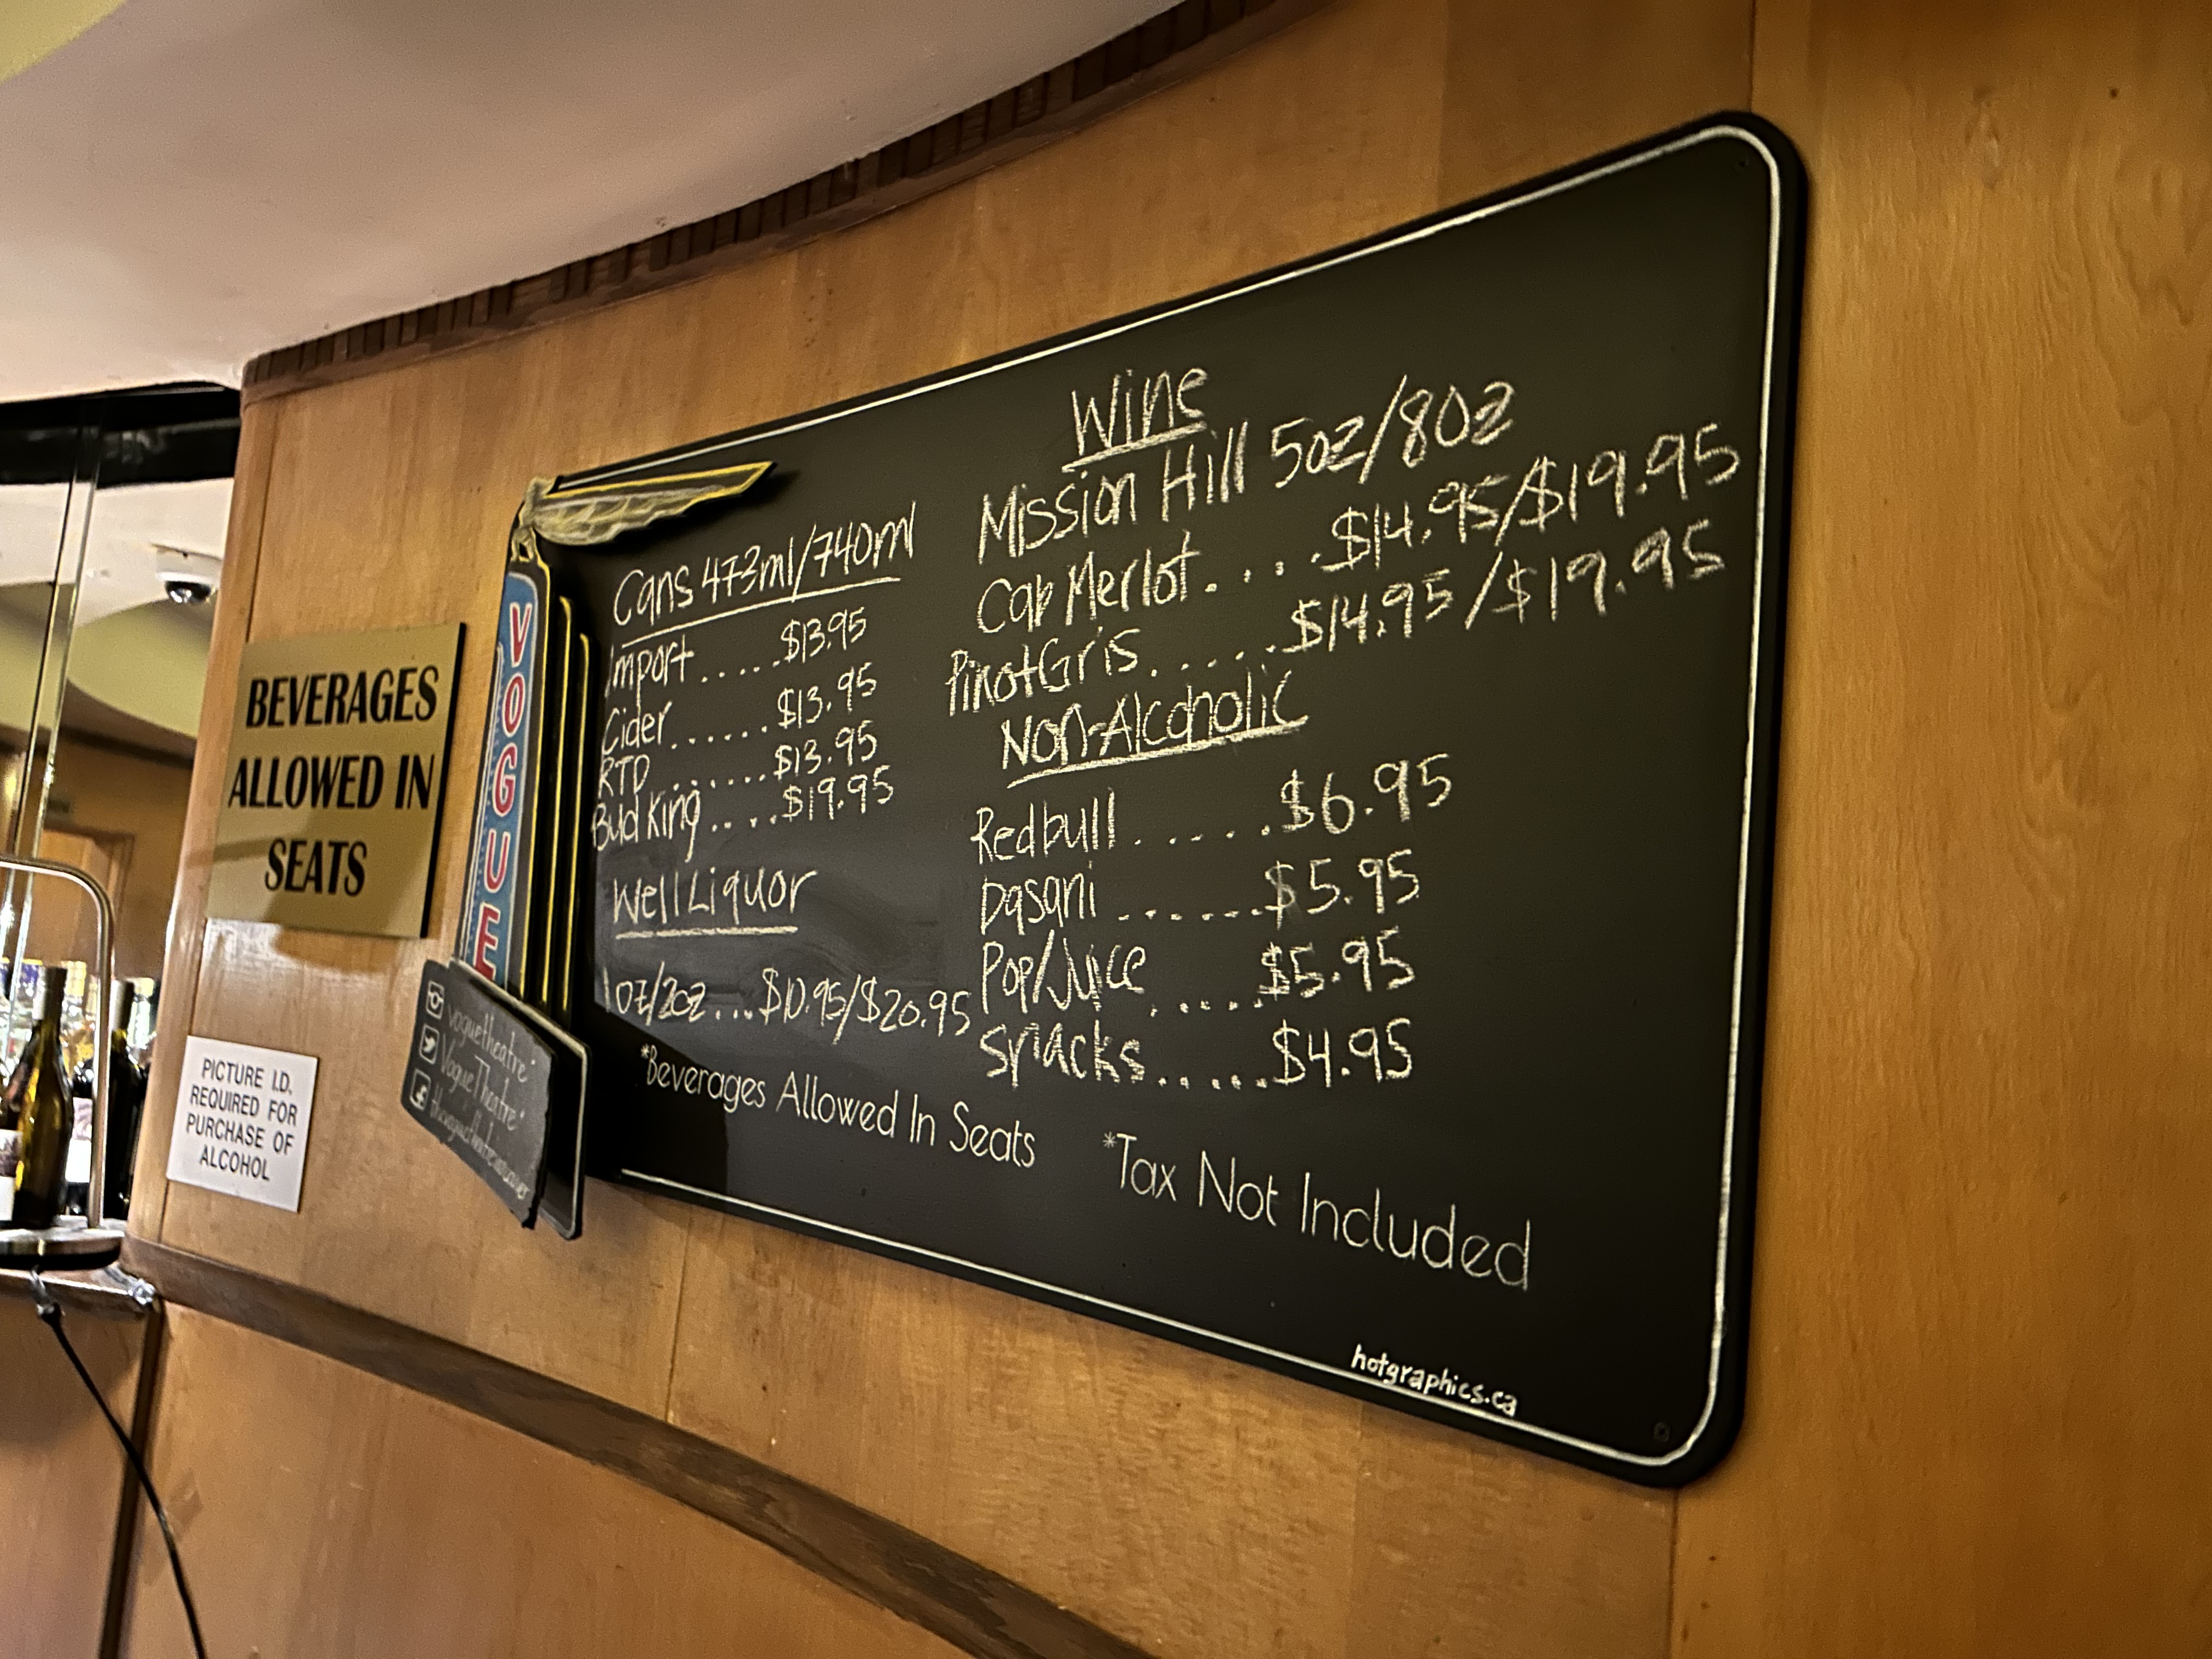 BEVERAGES
ALLOWED IN
SEATS
PICTURE I.D.
REQUIRED FOR
PURCHASE OF
ALCOHOL
VOGUE
voguetheatre
VogueTheatre
Cans 473ml/740ml
Import.....$13.95
Cider......$13.95
RTD.......$13.95
Bud King....$19.95
Well Liquor
1oz/2oz...$10.95/$20.95
*Beverages Allowed In Seats
Wine
Mission Hill 5oz/8oz
Cab Merlot....$14.95/$19.95
Pinot Gris.....$14.95/$19.95
Non-Alcoholic
Redbull.....$6.95
Dasani......$5.95
Pop/Juice.....$5.95
Snacks.....$4.95
*Tax Not Included
hotgraphics.ca